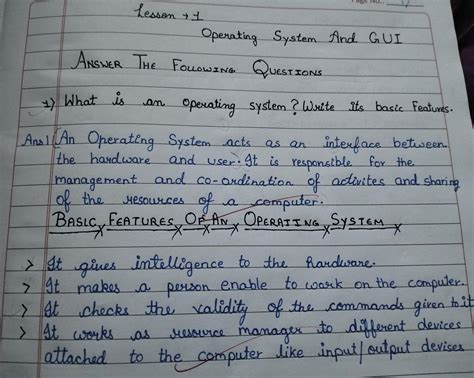 Page No.
Lesson → 1
Operating System And GUI
ANSWER THE FOLLOWING QUESTIONS
1) What is an operating system? Write its basic features.
Ans1 An Operating System acts as an interface between
the hardware and user. It is responsible for the
management and co-ordination of activites and sharing
of the resources of a computer.
BASIC FEATURES OF AN OPERATING SYSTEM
> It gives intelligence to the hardware.
> It makes a person enable to work on the computer.
> It checks the validity of the commands given to it
> It works as resource manager to different devices
attached to the computer like input/output devises